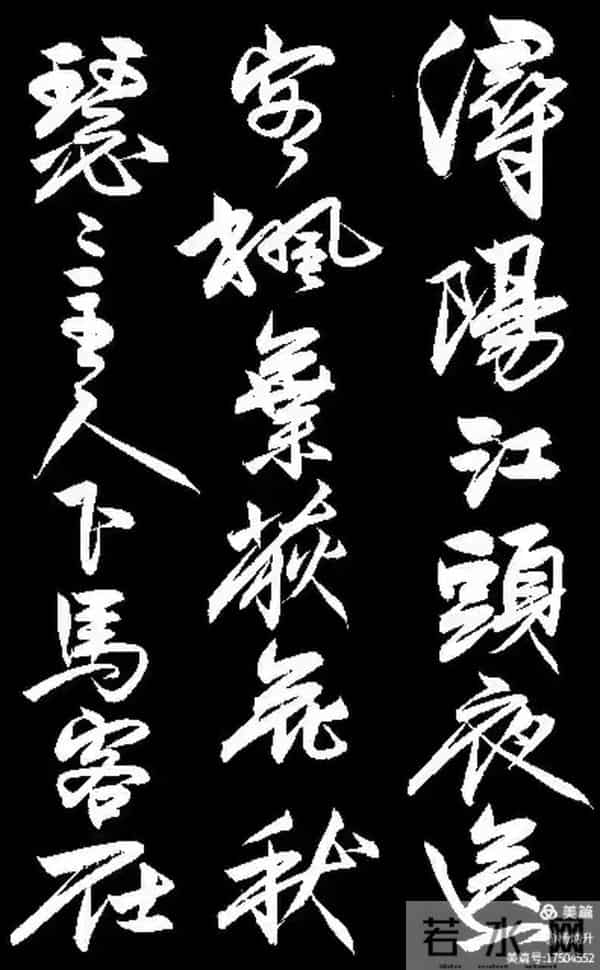 潯陽江頭夜送
客楓葉荻花秋
瑟〻主人下馬客在
美篇
若水网
美篇号:17504552